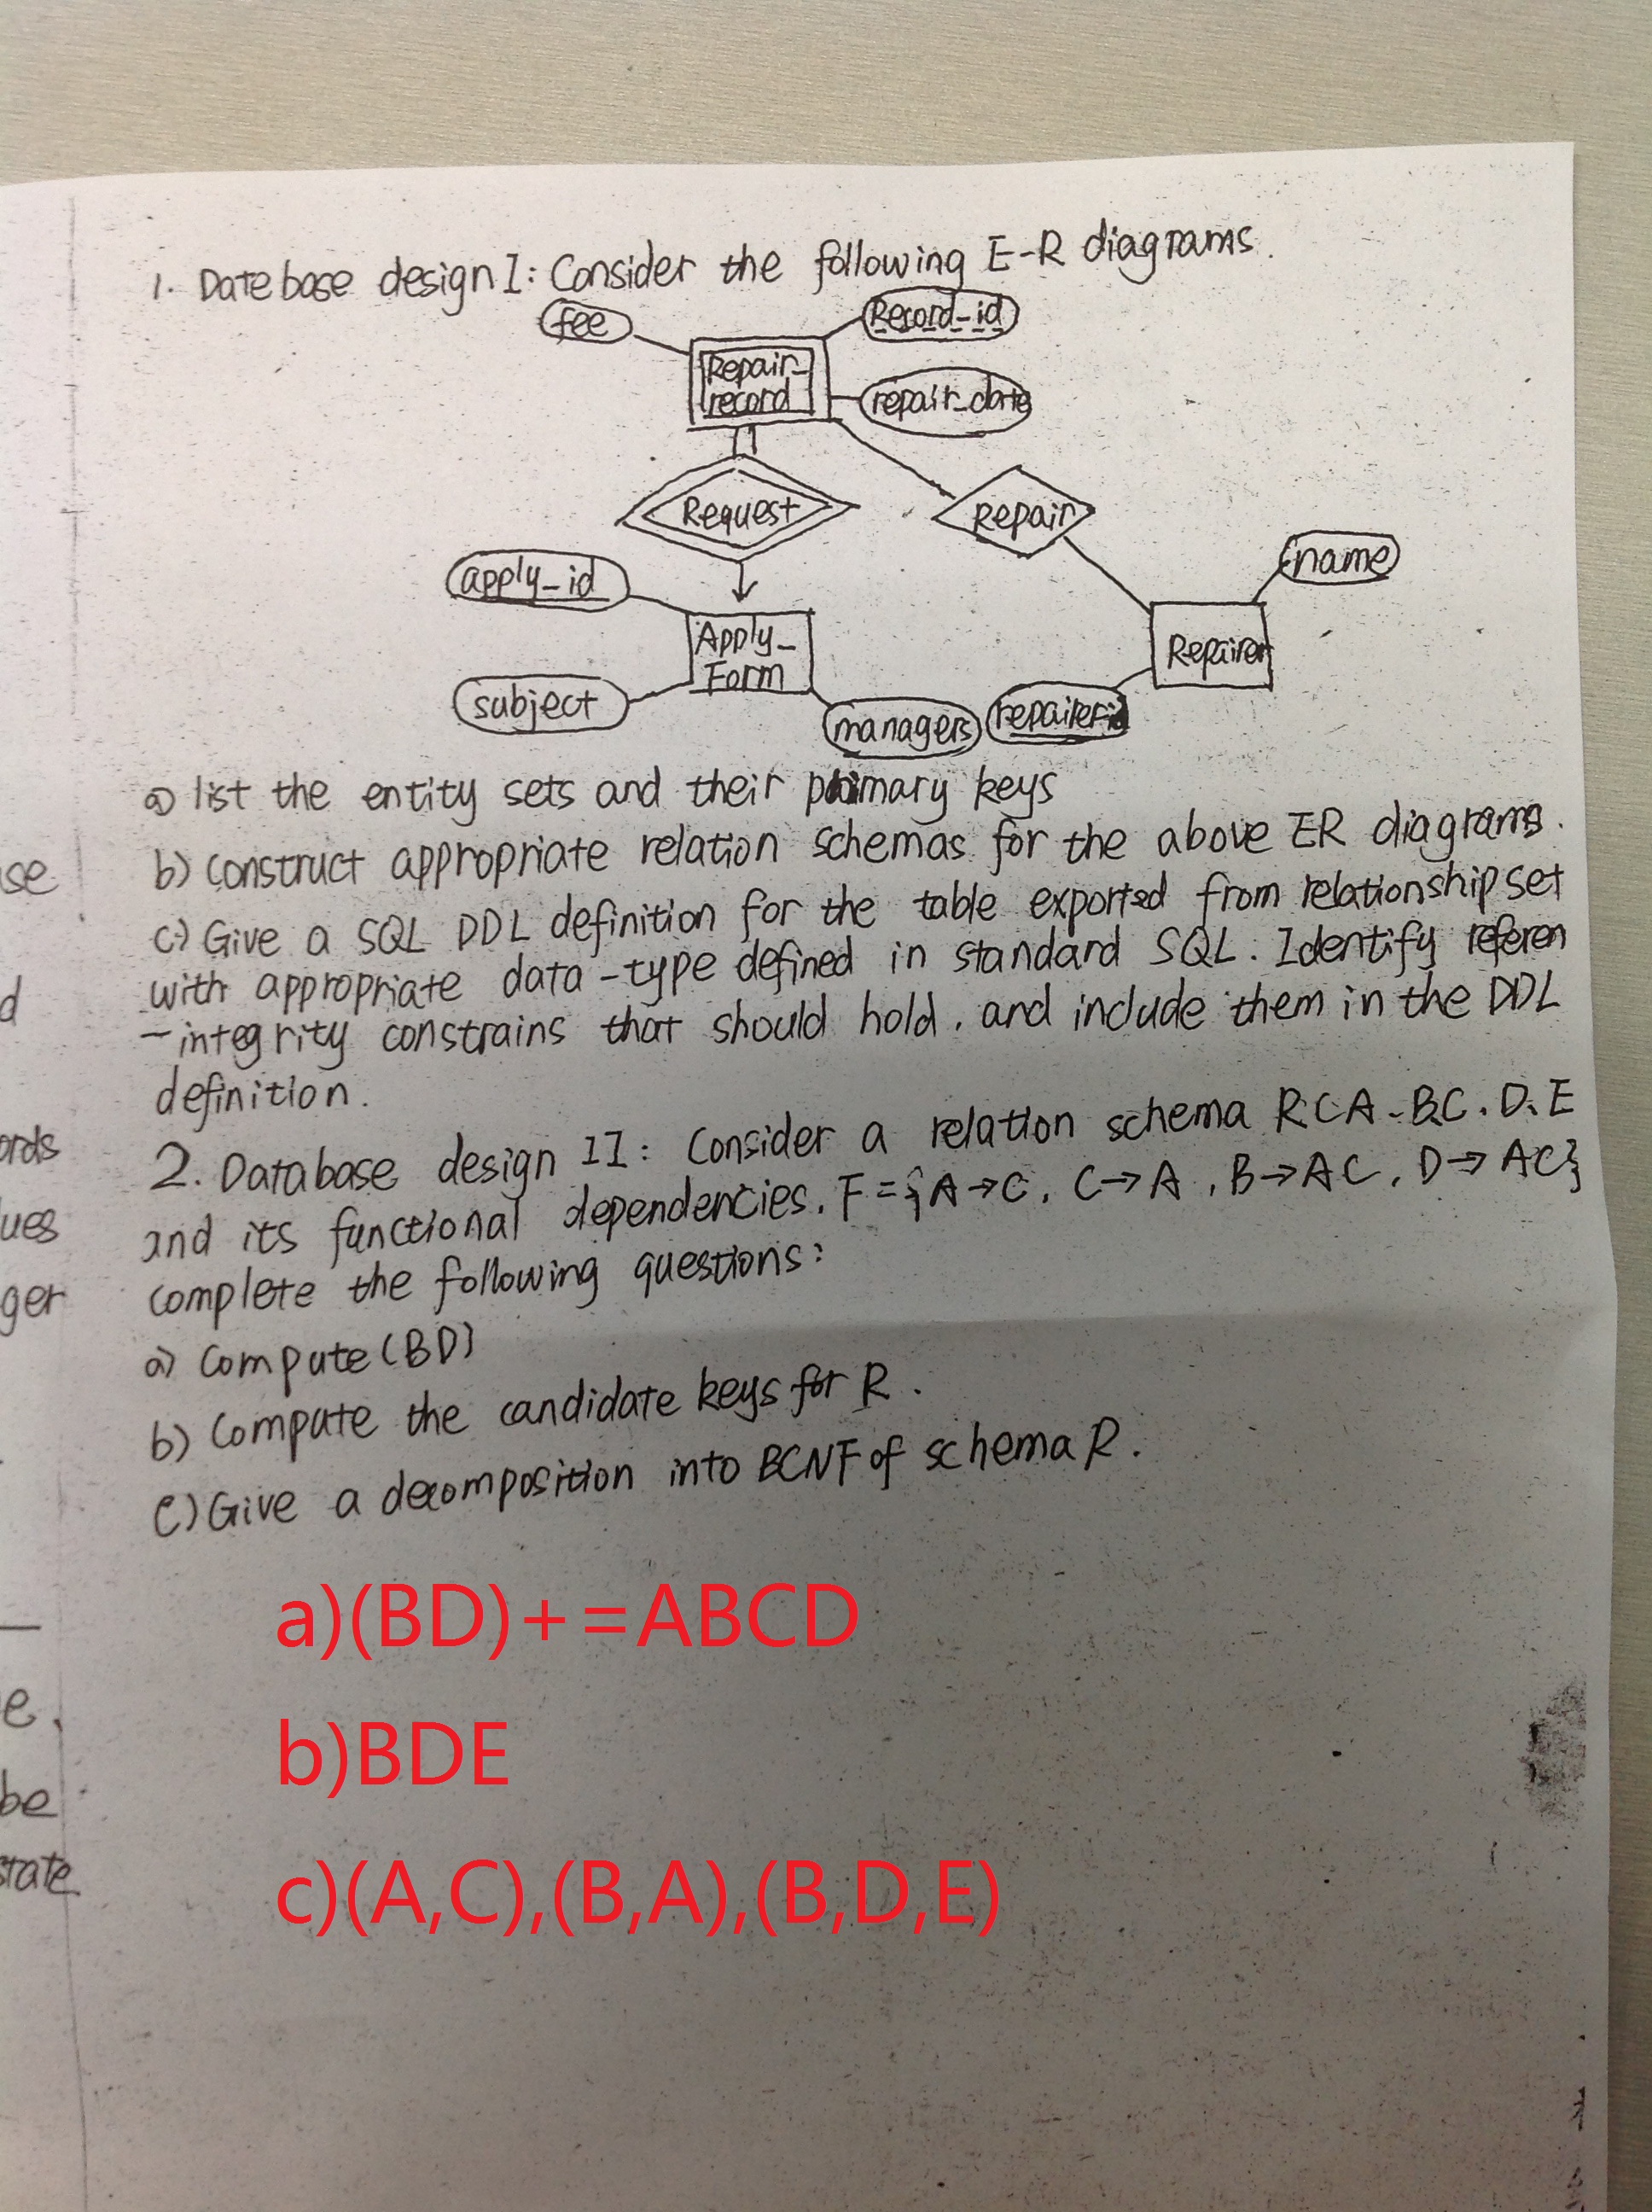 1. Datebase design I: Consider the following E-R diagrams.
fee
Record-id
Repair-
record
repair-date
Request
Repair
apply-id
name
Apply-
Form
Repairer
subject
managers
repairerid
a) list the entity sets and their primary keys
b) construct appropriate relation schemas for the above ER diagrams.
c) Give a SQL DDL definition for the table exported from relationship set
with appropriate data-type defined in standard SQL. Identify referen
-integrity constrains that should hold, and include them in the DDL
definition.
2. Database design II: Consider a relation schema R(A.B.C.D.E
and its functional dependencies, F={A→C, C→A, B→AC, D→AC}
complete the following questions:
a) Compute (BD)
b) Compute the candidate keys for R.
c) Give a decomposition into BCNF of schema R.
a)(BD)+=ABCD
b)BDE
c)(A,C),(B,A),(B,D,E)
se
d
ords
ues
ger
e.
be
state